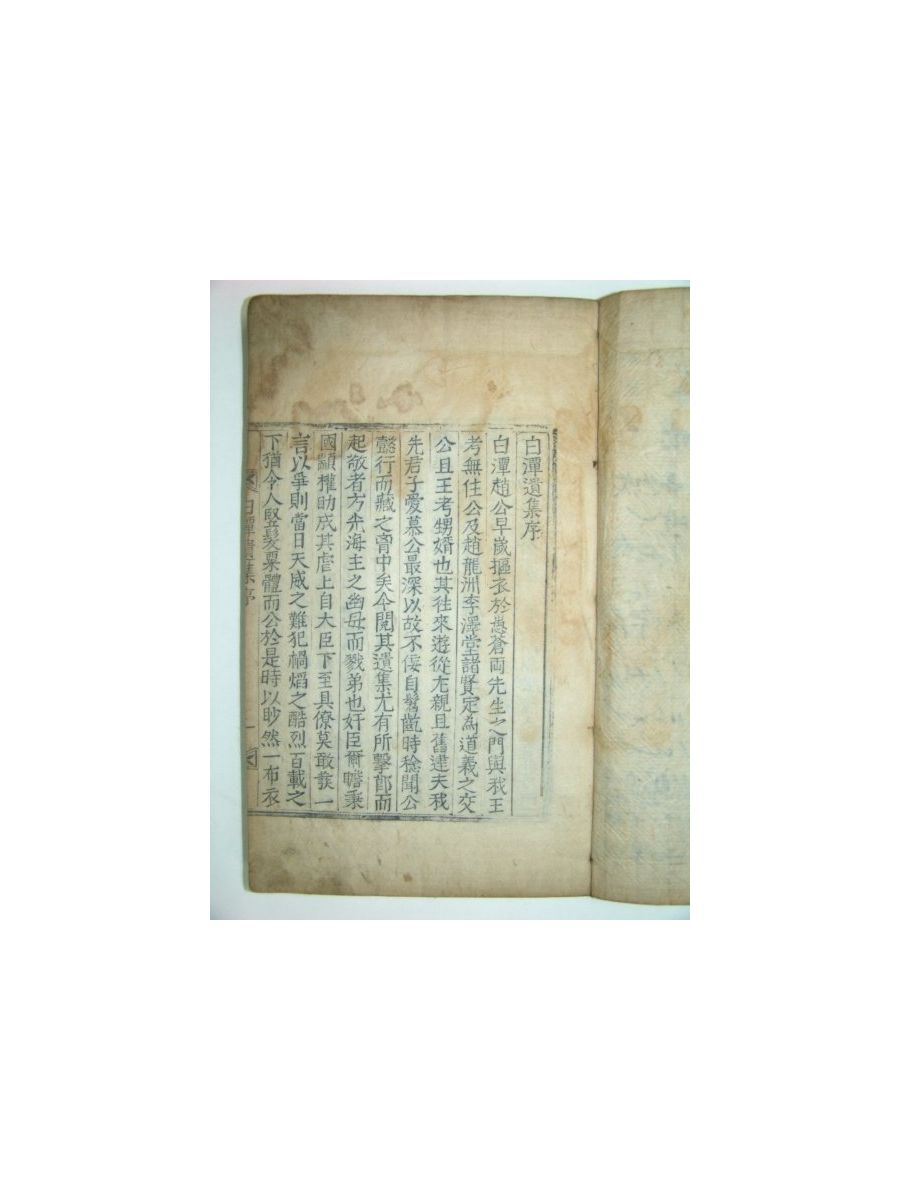 白潭遺集序
白潭趙公早歲摳衣於愚蒼兩先生之門與我王
考無住公及趙龍洲李澤堂諸賢定為道義之交
公且王考甥婿也其往來遊從尤親且舊逮夫我
先君子愛慕公最深以故不佞自髫齔時稔聞公
懿行而藏之胷中矣今閱其遺集尤有所擊節而
起敬者方光海主之幽母而戮弟也奸臣爾瞻秉
國顓權助成其虐上自大臣下至具僚莫敢發一
言以爭則當日天威之難犯禍熖之酷烈百載之
下猶令人竪髮粟體而公於是時以眇然一布衣
白潭遺集序
一